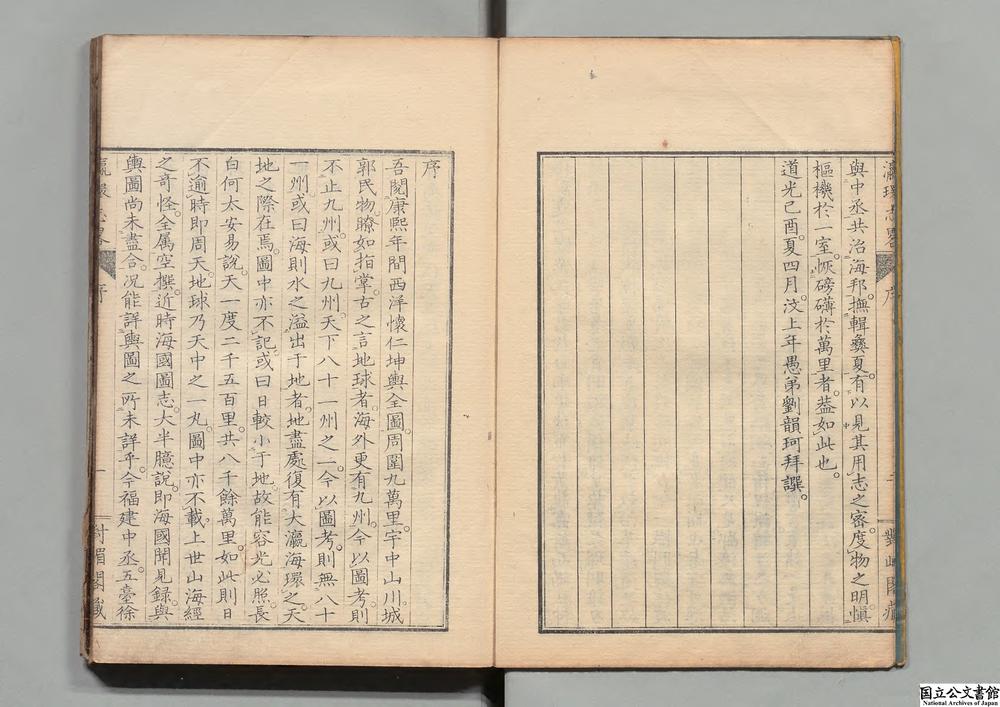 與中丞共治海邦。撫輯彝夏。有以見其用志之密。度物之明。愼
樞機於一室。恢磅礴於萬里者。葢如此也。
道光己酉。夏四月。汶上年愚弟劉韻珂拜譔。
序
吾閱康熙年間西洋懷仁坤輿全圖。周圍九萬里。宇中山川城
郭民物。瞭如指掌。古之言地球者。海外更有九州。今以圖考則
不止九州。或曰九州。天下八十一州之一。今以圖考。則無八十
一州。或曰海則水之溢出于地者。地盡處復有大瀛海環之。天
地之際在焉。圖中亦不記。或曰日較小于地。故能容光必照。長
白何太安易說。天一度二千五百里。共八千餘萬里。如此則日
不逾時即周天。地球乃天中之一丸。圖中亦不載。上世山海經
之奇怪。全属空撰。近時海國圖志。大半臆說。即海國聞見録。與
輿圖尚未盡合。况能詳輿圖之所未詳乎。今福建中丞。五臺徐
序
一
對嵋閣藏
国立公文書館
National Archives of Japan